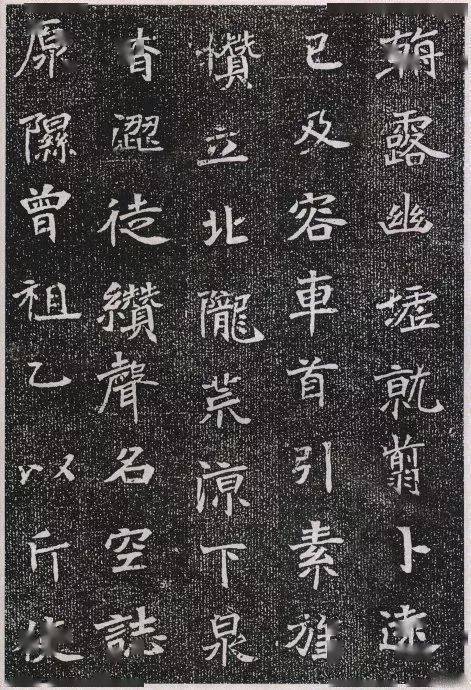 露幽墟就翦卜遠
已及容車首引素旌
立北隴荒涼下泉
杳澀徒纘聲名空誌
原隰曾祖乙以斤使